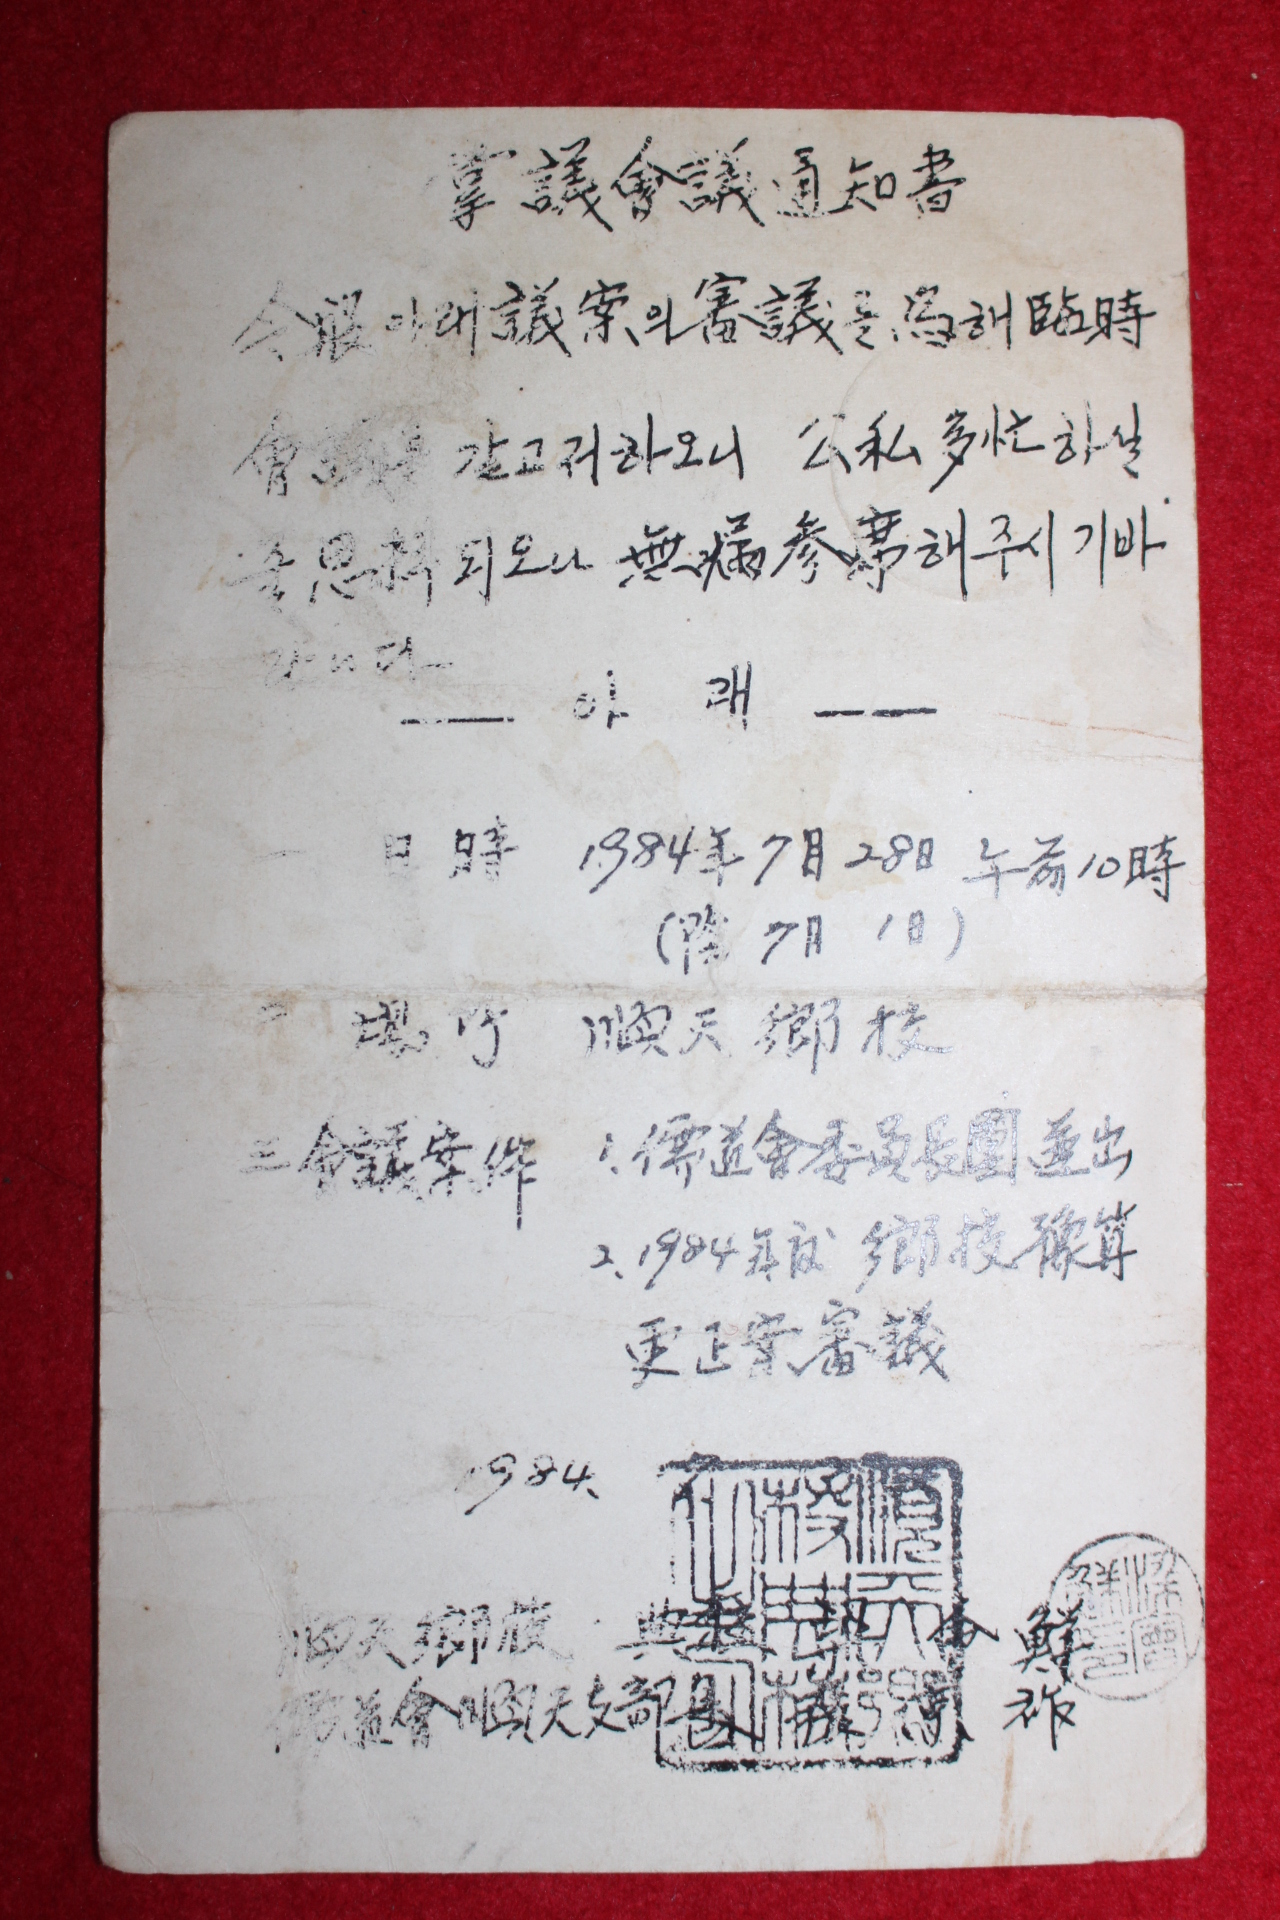 掌議會議通知書
今般 아래 議案의 審議를 爲해 臨時
會議를 갖고저 하오니 公私多忙하실
줄 思料되오나 無漏參席해 주시기 바
랍니다
—— 아 래 ——
一 日時 1984年 7月 28日 午前 10時
(陰 7月 1日)
二 場所 順天鄕校
三 會議案件 1. 儒道會委員長團選出
2. 1984年度 鄕校豫算
更正案審議
1984. 7
順天鄕校 典
儒道會順天支部長